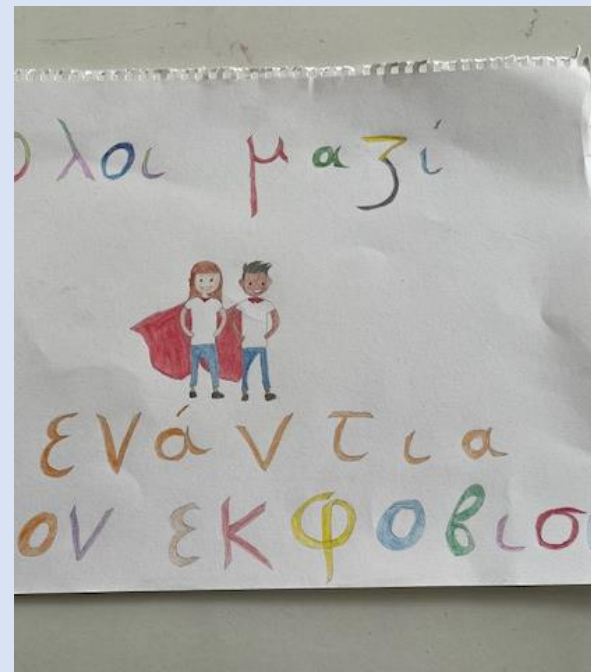 όλοι μαζί
ενάντια
ον εκφοβισ